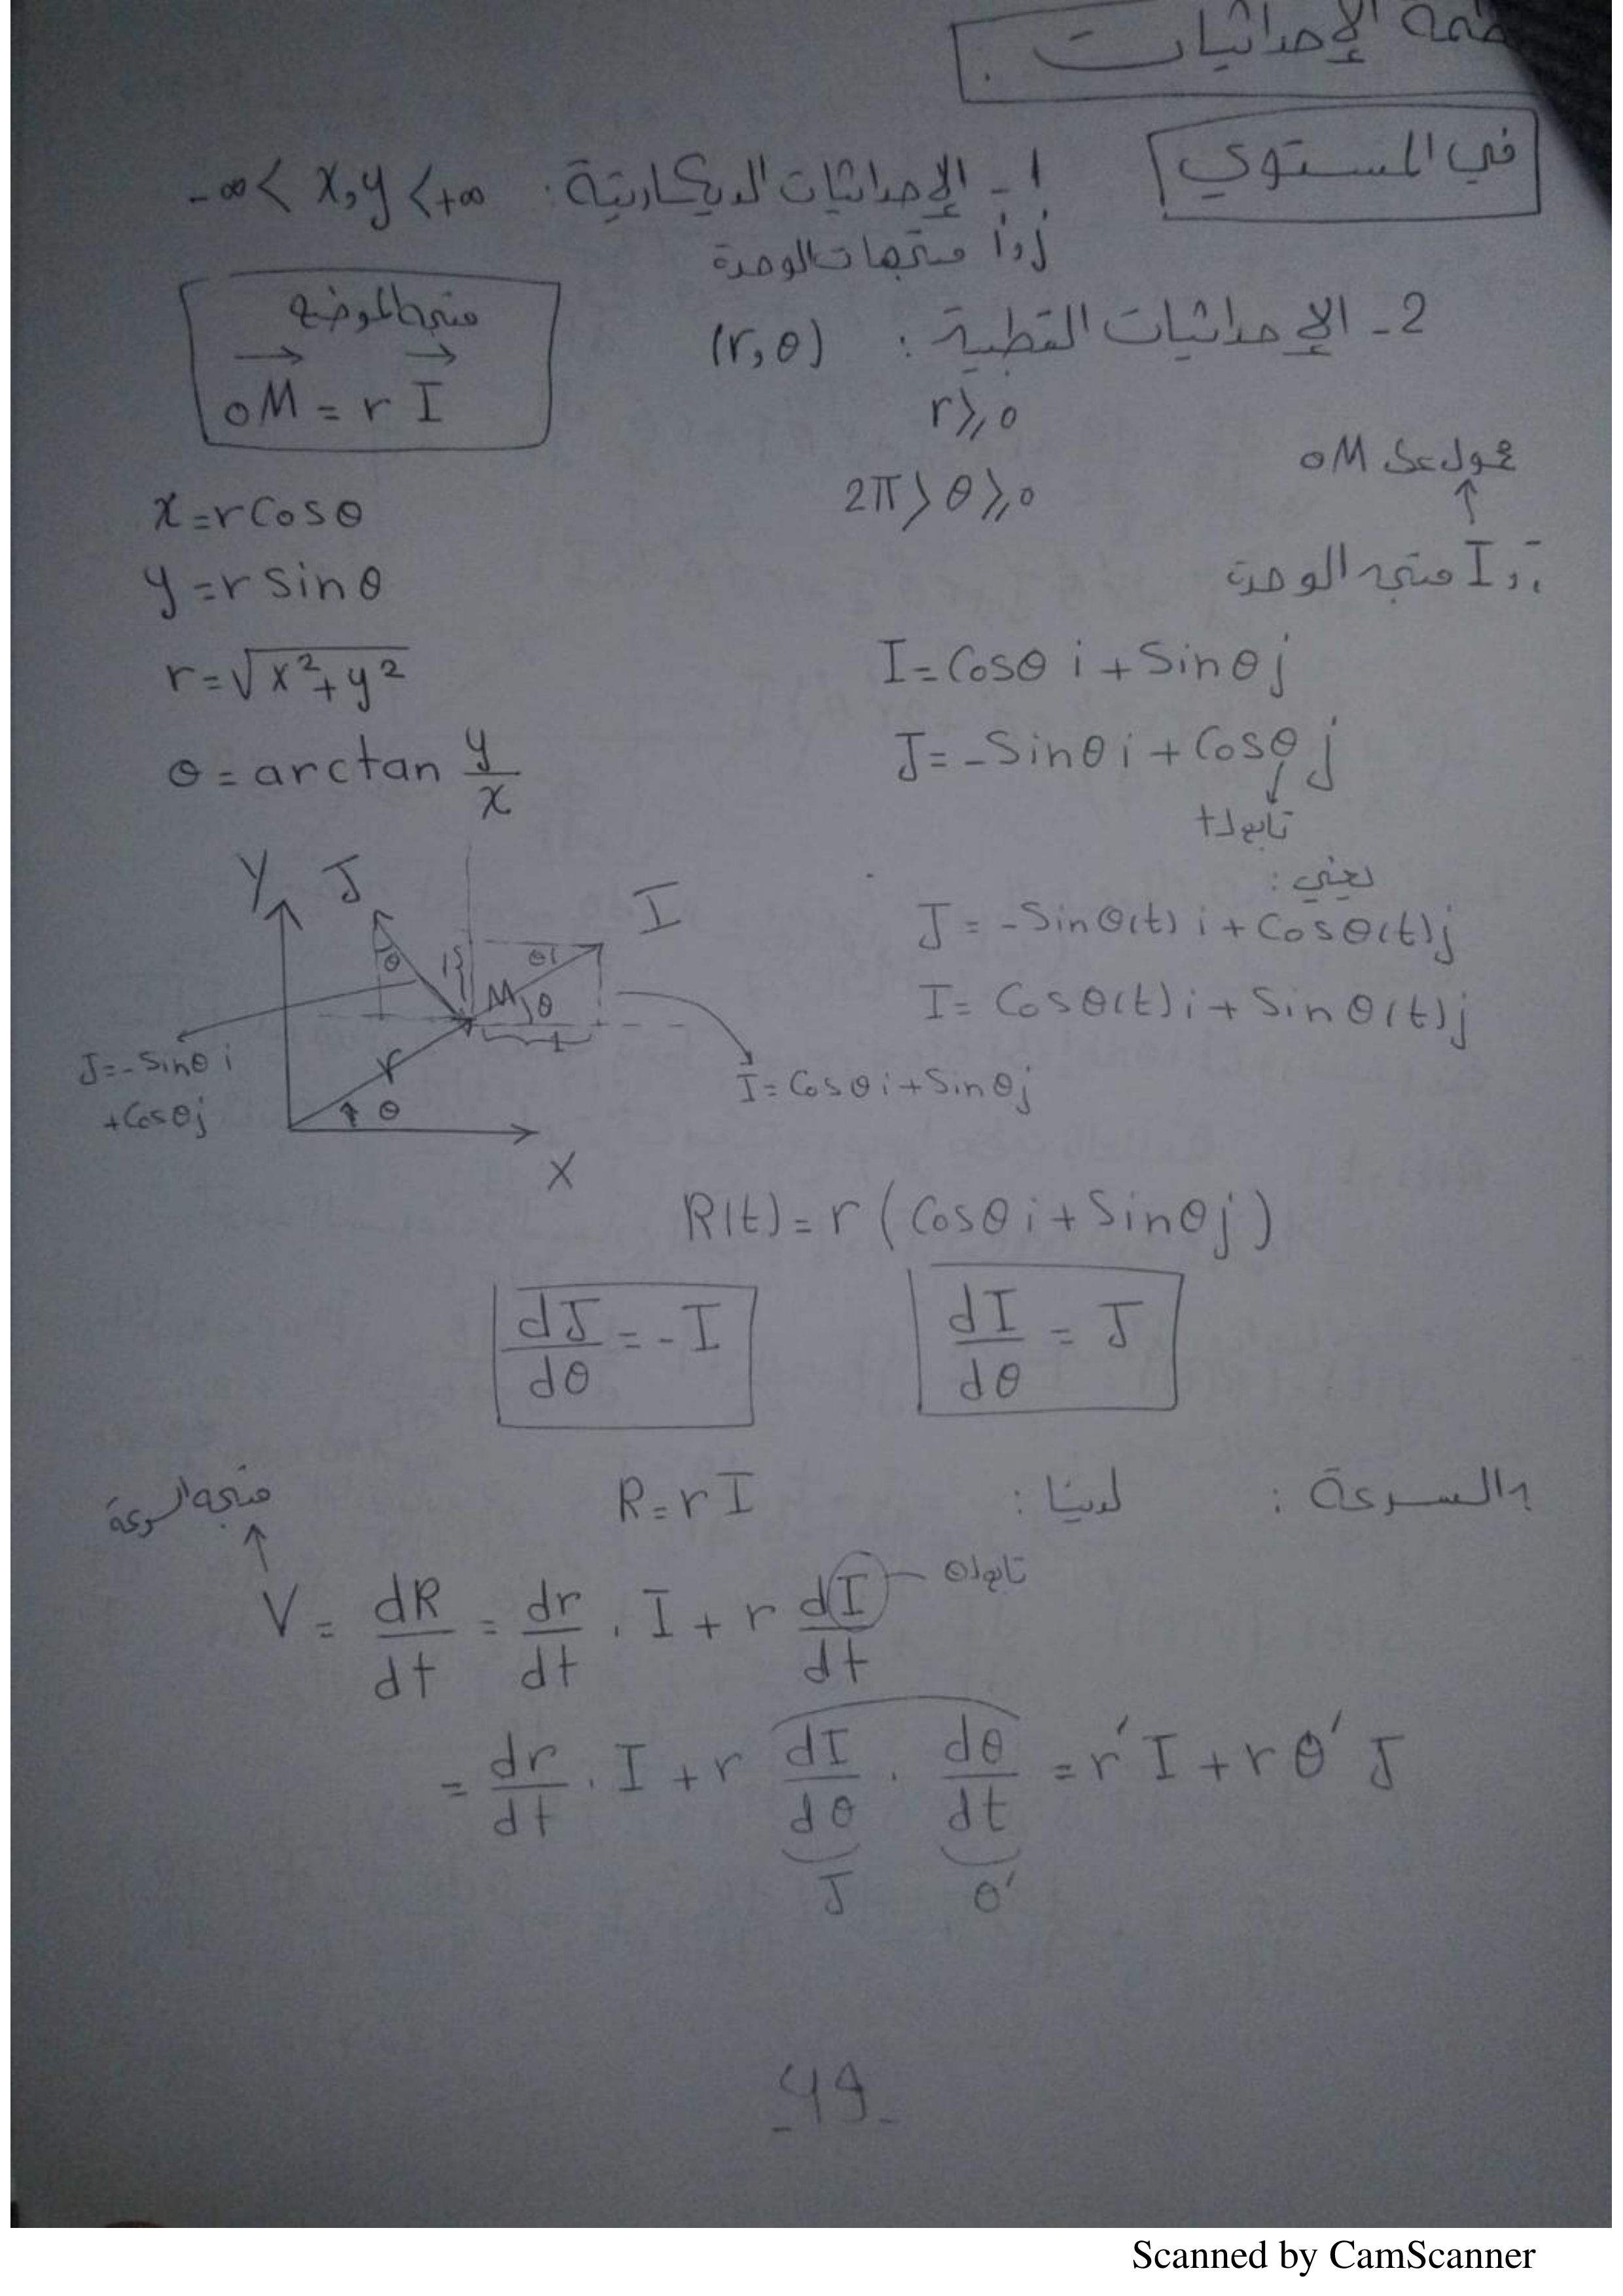 الإحداثيات .
في المستوي
1 - الإحداثيات الديكارتية : -∞ < x, y < +∞
i و j متجهات الوحدة
2 - الإحداثيات القطبية : (r, θ)
متجه الموضع
OM = r I
r ≥ 0
2π > θ ≥ 0
محمول على OM
I متجه الوحدة
x = r cos θ
y = r sin θ
r = √x² + y²
θ = arctan y/x
I = Cosθ i + Sinθ j
J = - Sinθ i + Cosθ j
تابع لـ t
يعني :
J = - Sinθ(t) i + Cosθ(t) j
I = Cosθ(t) i + Sinθ(t) j
Y
J
I
θ
1
θ
M
θ
1
r
θ
X
J = - Sinθ i
+ Cosθ j
I = Cosθ i + Sinθ j
R(t) = r ( Cosθ i + Sinθ j )
dI/dθ = J
dJ/dθ = - I
السرعة : لدينا : R = r I
متجه السرعة
V = dR/dt = dr/dt . I + r dI/dt
تابع لـ θ
= dr/dt . I + r dI/dθ . dθ/dt = r' I + r θ' J
J
θ'
- 49 -
Scanned by CamScanner